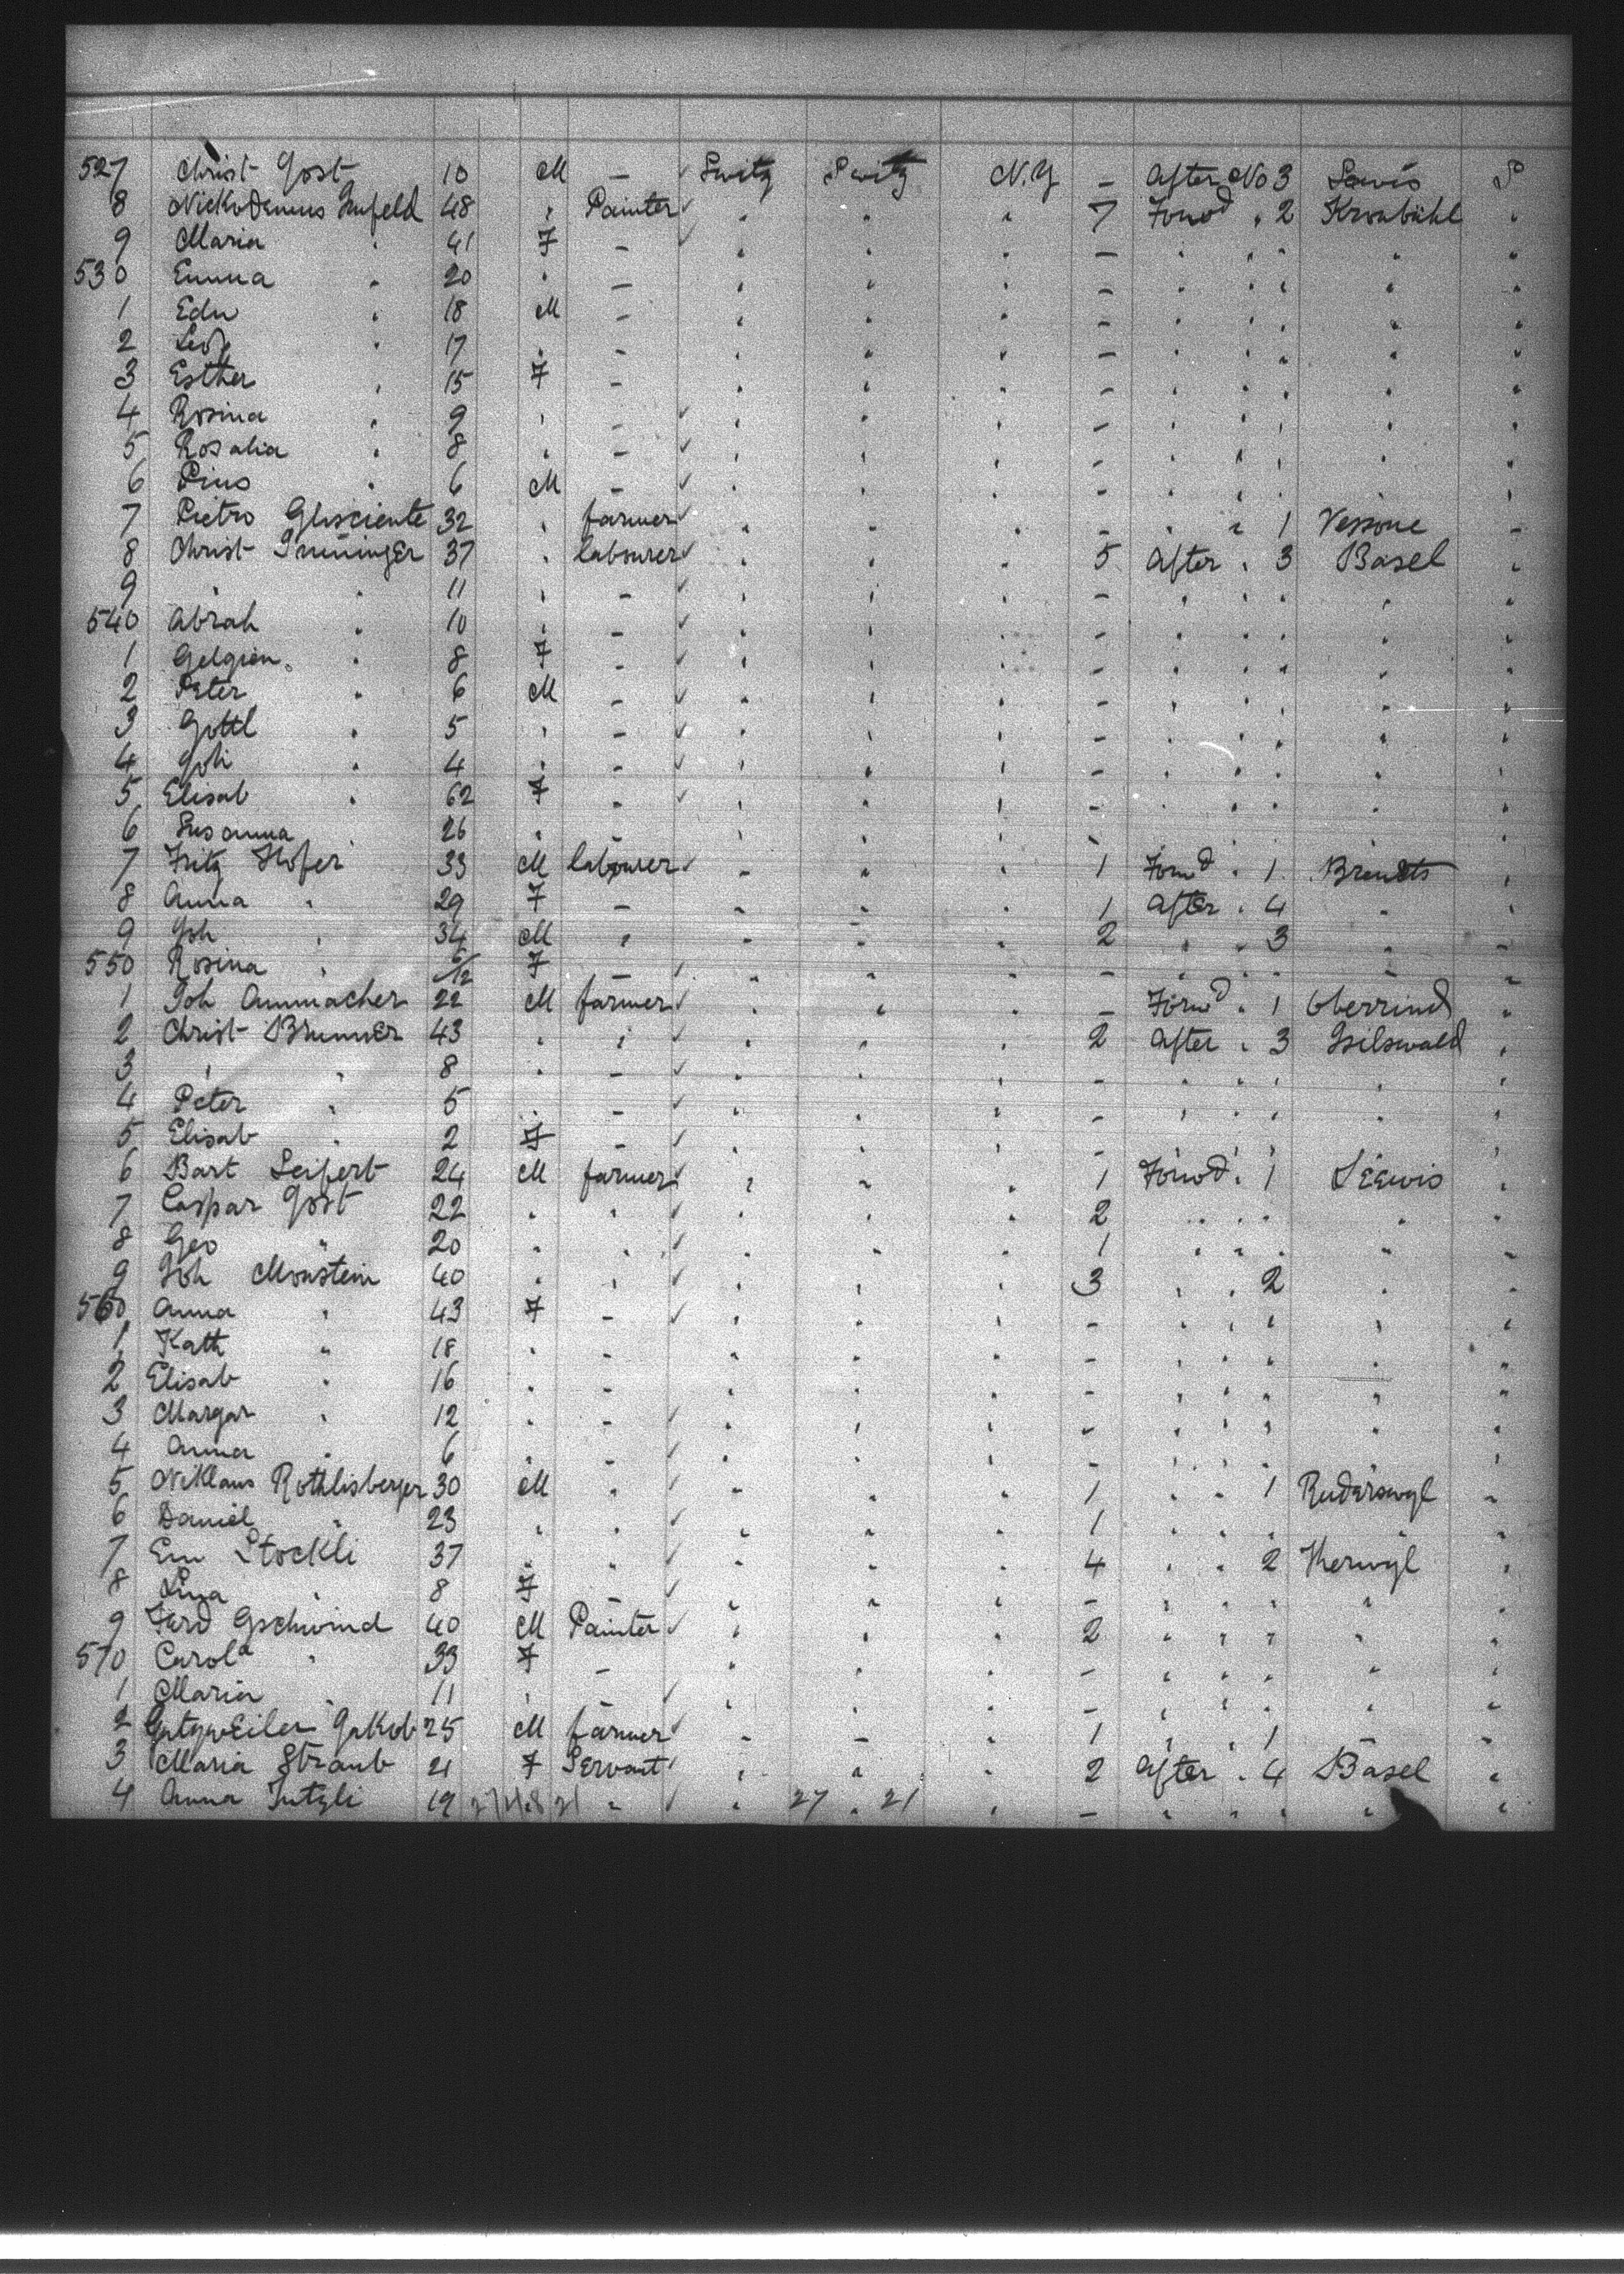 527 Christ Jost 10 M — ✓ Switz Switz N.Y — After No 3 Sewis S
8 Nickodemus Imfeld 48 " Painter ✓ " " " 7 Forwd " 2 Kronbühl "
9 Maria " 41 F — ✓ " " " — " " " " "
530 Emma " 20 " — " " " — " " " " "
1 Edw " 18 M — " " " — " " " " "
2 Leo " 17 " — " " " — " " " " "
3 Esther " 15 F — " " " — " " " " "
4 Rosina " 9 " — ✓ " " " — " " " " "
5 Rosalia " 8 " — ✓ " " " — " " " " "
6 Pius " 6 M — ✓ " " " — " " " " "
7 Pietro 32 " farmer ✓ " " " — " " 1 Vessone "
8 Christ 37 " labourer ✓ " " " 5 After " 3 Basel "
9 " " 11 " — ✓ " " " — " " " " "
540 Abrah " 10 " — ✓ " " " — " " " " "
1 " 8 F — ✓ " " " — " " " " "
2 Peter " 6 M — ✓ " " " — " " " " "
3 Gottl " 5 " — ✓ " " " — " " " " "
4 Joh " 4 " — ✓ " " " — " " " " "
5 Elisab " 62 F — ✓ " " " — " " " " "
6 Susanna 26 " — " " " — " " " " "
7 Fritz Hofer 33 M labourer ✓ " " " 1 Forwd " 1 "
8 Anna " 29 F — " " " 1 After " 4 " "
9 Joh " 34 M " " " " 2 " " 3 " "
550 Rosina " 6/12 F — ✓ " " " — " " " " "
1 Joh Ammacher 22 M farmer ✓ " " " — Forwd " 1 Oberrind "
2 Christ Brunner 43 " " ✓ " " " 2 After " 3 Isilswald "
3 " " 8 " — ✓ " " " — " " " " "
4 Peter " 5 " — ✓ " " " — " " " " "
5 Elisab " 2 F — ✓ " " " — " " " " "
6 Bart Seifert 24 M farmer ✓ " " " 1 Forwd " 1 Seewis "
7 Caspar Jost 22 " " ✓ " " " 2 " " " " "
8 Geo " 20 " " ✓ " " " 1 " " " " "
9 Joh Monstein 40 " " ✓ " " " 3 " " 2 " "
560 Anna " 43 F — ✓ " " " — " " " " "
1 Kath " 18 " — " " " — " " " " "
2 Elisab " 16 " — " " " — " " " " "
3 Margar " 12 " — ✓ " " " — " " " " "
4 Anna " 6 " — ✓ " " " — " " " " "
5 Niklaus Rothlisberger 30 M " ✓ " " " 1 " " 1 Ruderswyl "
6 Daniel " 23 " " ✓ " " " 1 " " " " "
7 Em Stockli 37 " " ✓ " " " 4 " " 2 Therwyl "
8 Lina " 8 F — ✓ " " " — " " " " "
9 Ferd Gschwind 40 M Painter ✓ " " " 2 " " " " "
570 Carola " 33 F — " " " — " " " " "
1 Maria " 11 " — ✓ " " " — " " " " "
2 Gutzweiler Jakob 25 M farmer ✓ " " " 1 " " 1 " "
3 Maria Straub 21 F Servant ✓ " " " 2 After " 4 Basel "
4 Anna Jutzli 19 " ✓ " 27 . 21 " — " " " " "